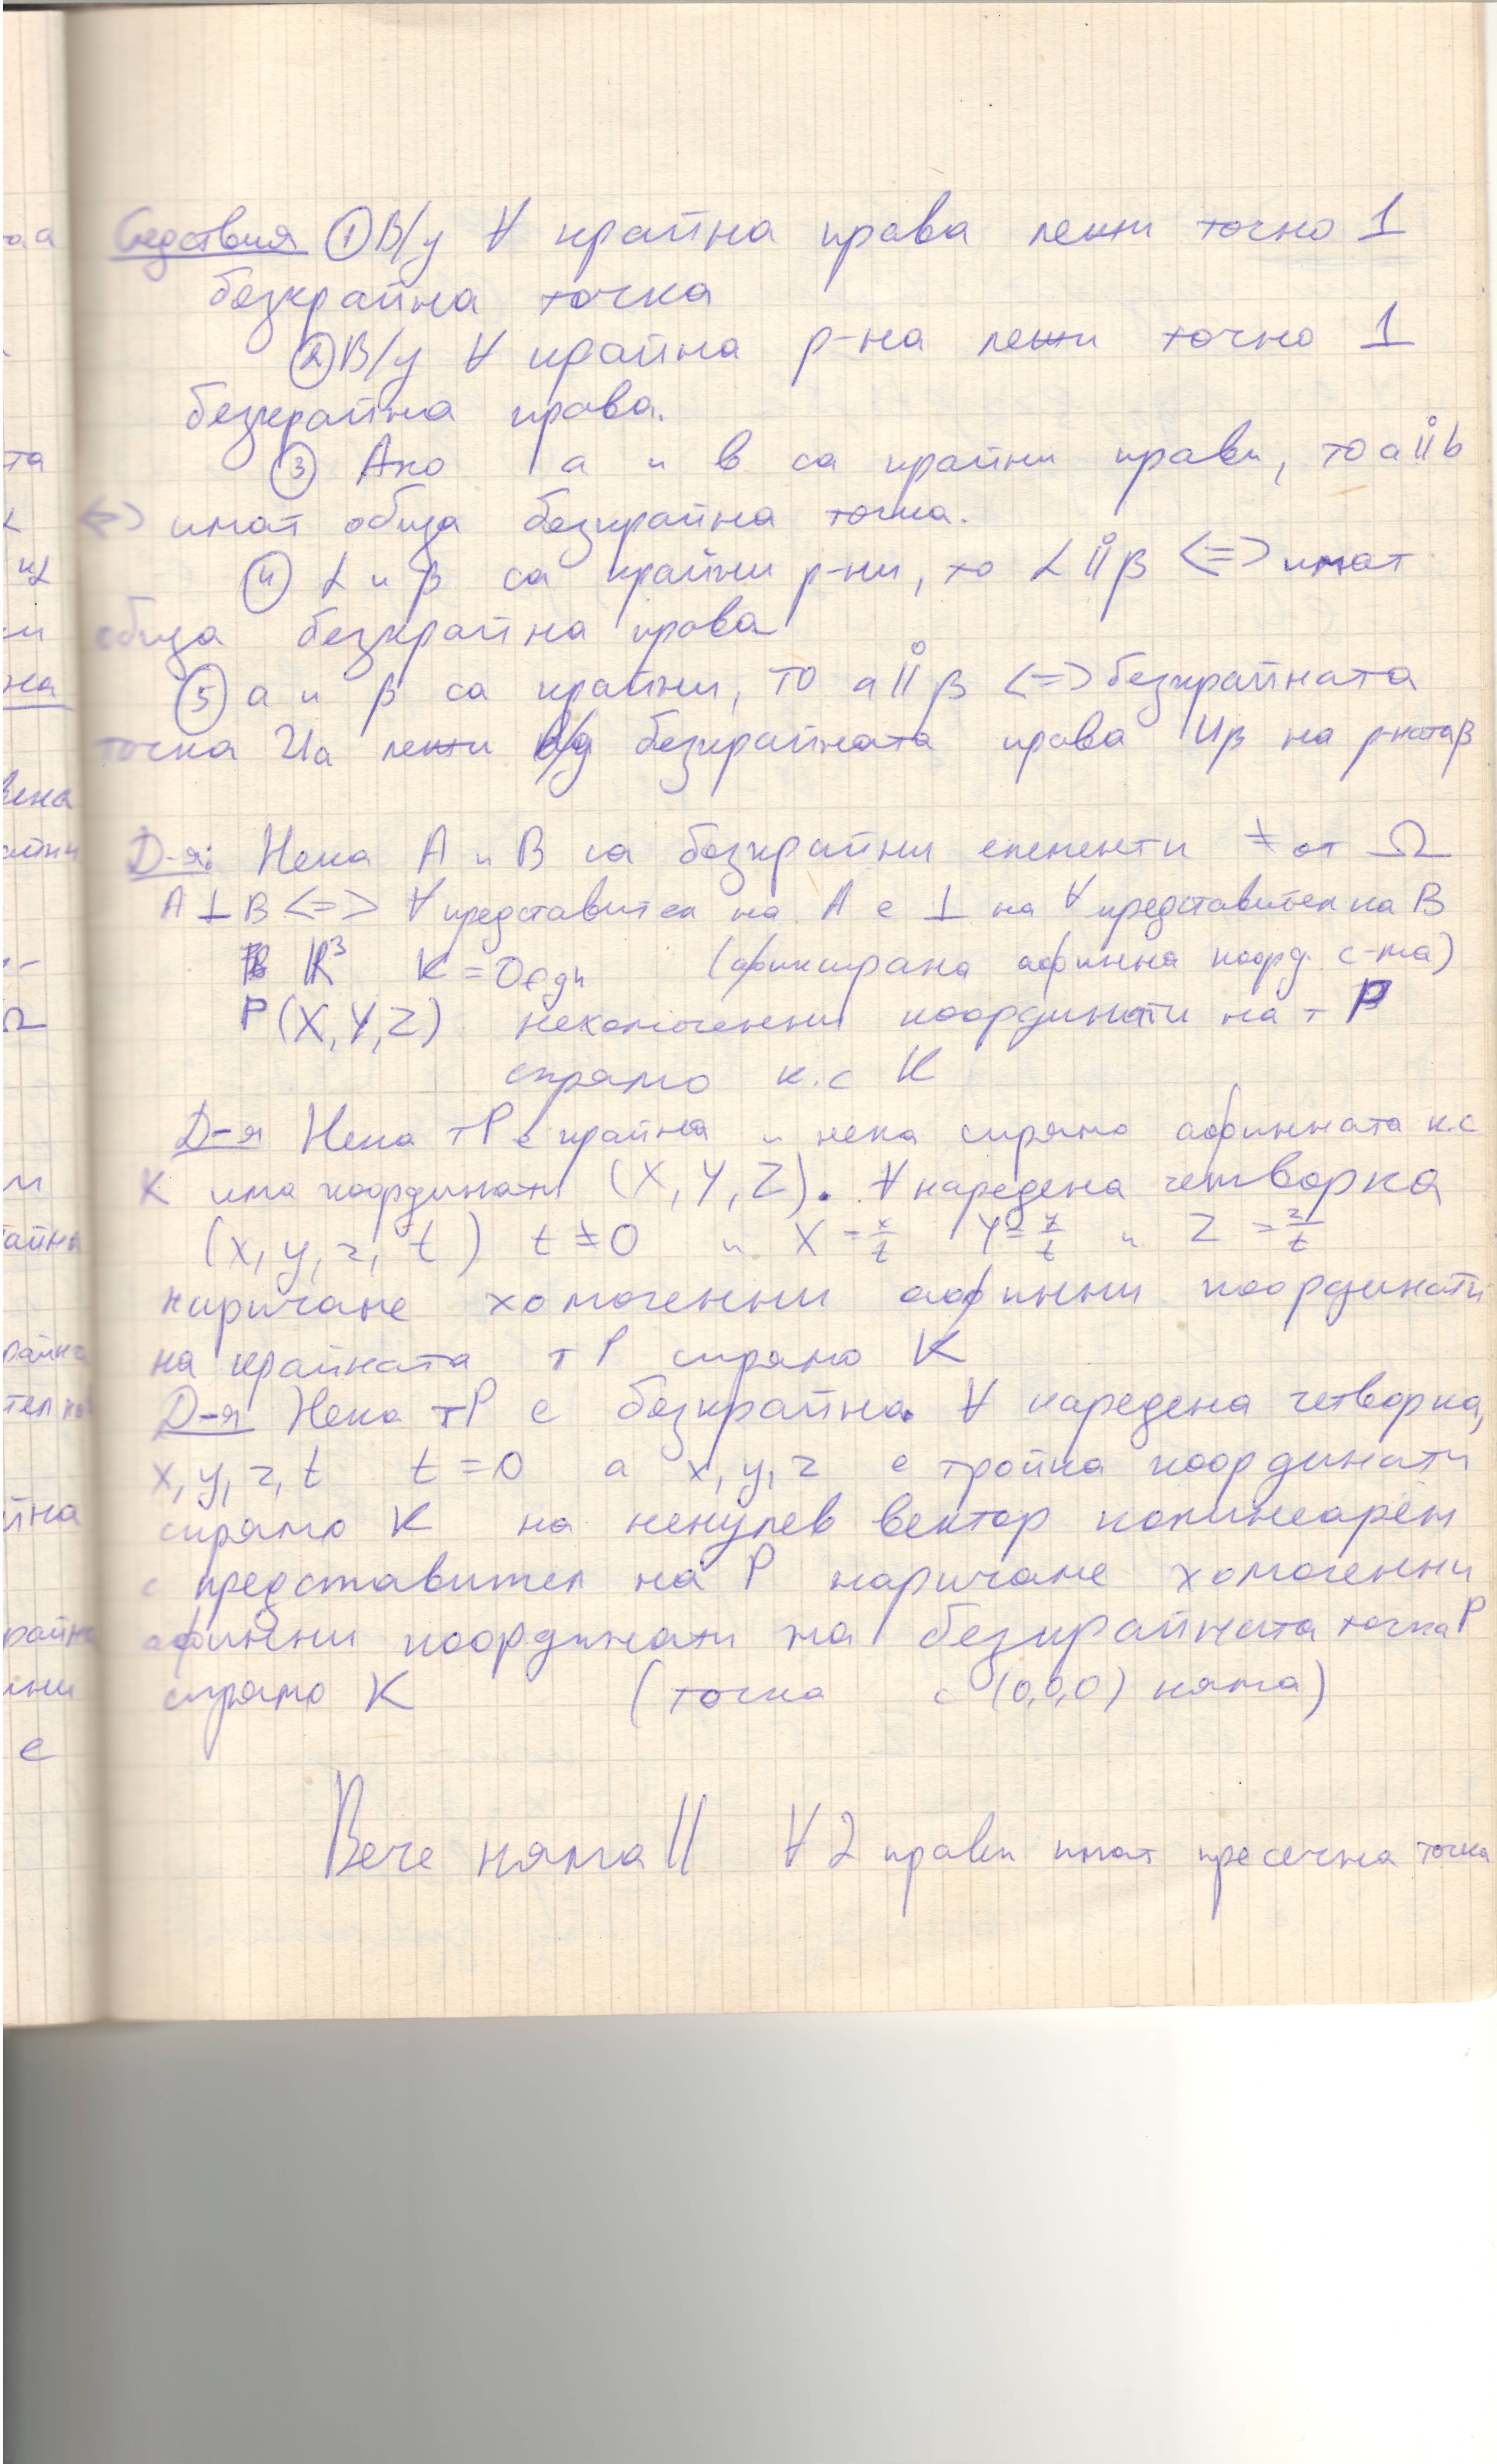 Следствия ① В/у ∀ крайна права лежи точно 1
безкрайна точка
② В/у ∀ крайна р-на лежи точно 1
безкрайна права.
③ Ако a и b са крайни прави, то a || b
<=> имат обща безкрайна точка.
④ α и β са крайни р-ни, то α || β <=> имат
обща безкрайна права
⑤ a и β са крайни, то a || β <=> безкрайната
точка Ua лежи в/у безкрайната права Uβ на р-ната β
Д-я: Нека A и B са безкрайни елементи ≠ от Ω
A ⊥ B <=> ∀ представител на A е ⊥ на ∀ представител на B
В R³ K = (фиксирана афинна коорд. с-ма)
P(X, Y, Z) нехомогенни координати на т P
спрямо к.с K
Д-я Нека т P е крайна и нека спрямо афинната к.с
K има координати (X, Y, Z). ∀ наредена четворка
(x, y, z, t) t ≠ 0 и X = x/t Y = y/t и Z = z/t
наричаме хомогенни афинни координати
на крайната т P спрямо K
Д-я Нека т P е безкрайна. ∀ наредена четворка,
x, y, z, t t = 0 а x, y, z е тройка координати
спрямо K на ненулев вектор колинеарен
с представител на P наричаме хомогенни
афинни координати на безкрайната точка P
спрямо K (точка с (0,0,0) няма)
Вече няма || ∀ 2 прави имат пресечна точка